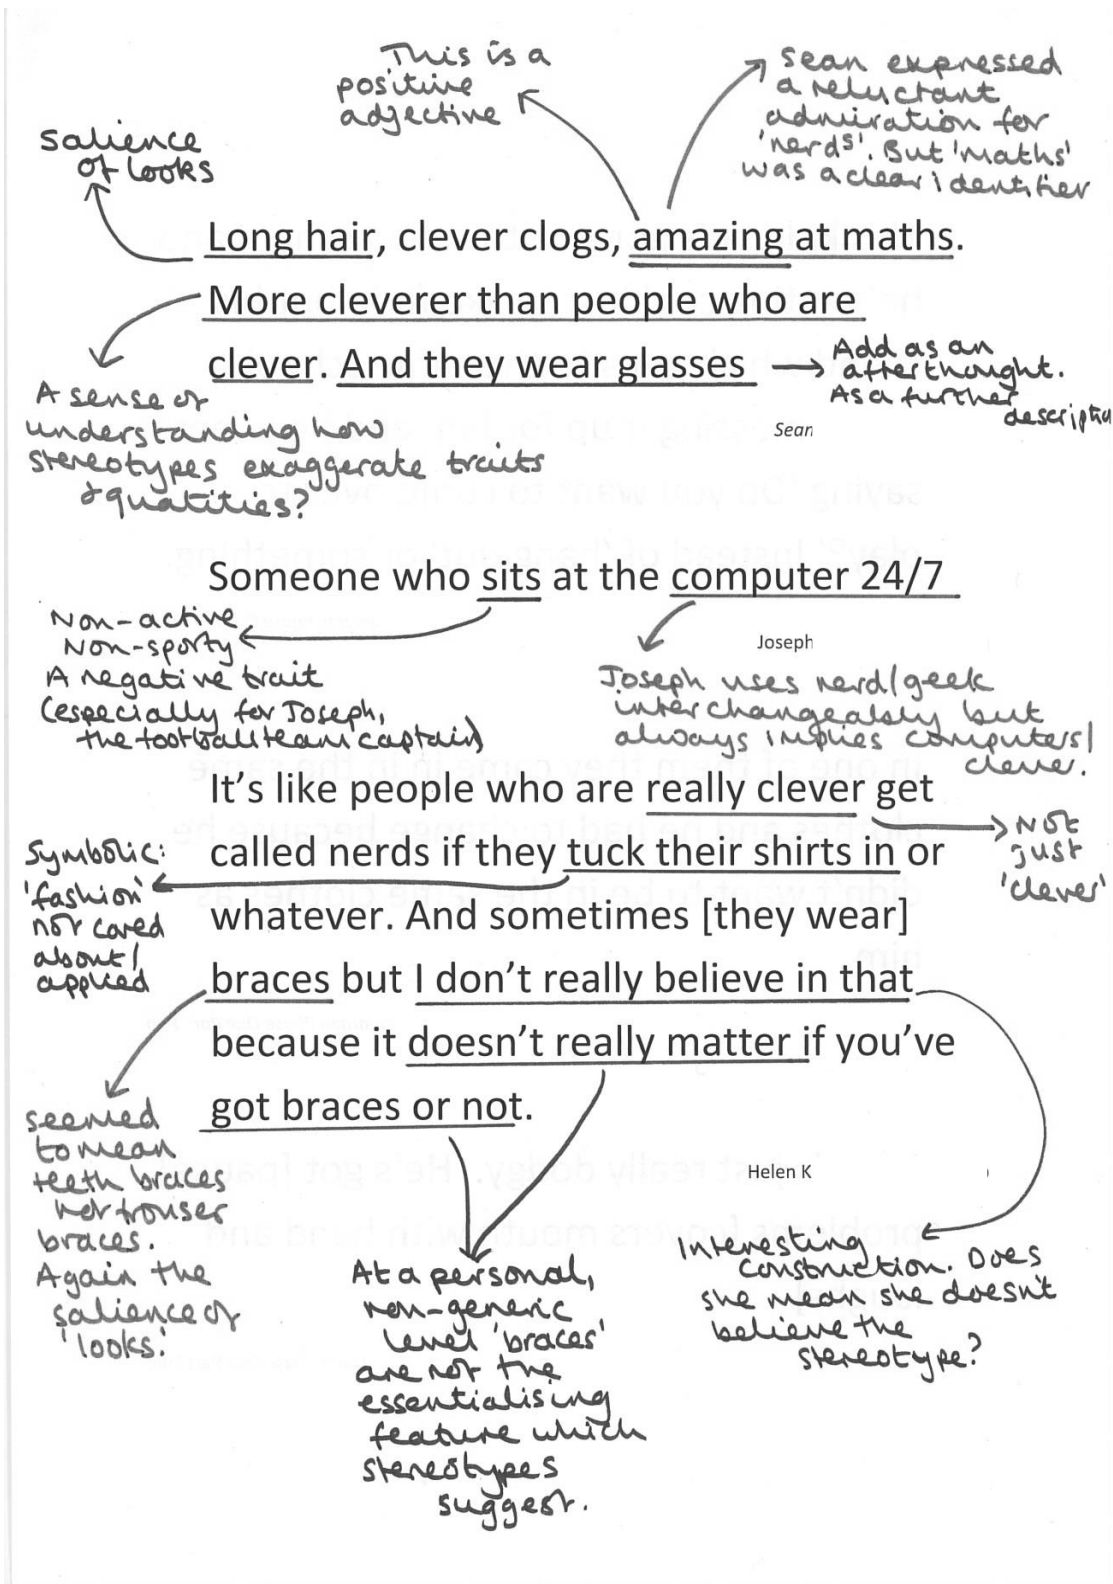 This is a
positive
adjective
Sean expressed
a reluctant
admiration for
'nerds'. But 'maths'
was a clear identifier
salience
of looks
Long hair, clever clogs, amazing at maths.
More cleverer than people who are
clever. And they wear glasses
Add as an
afterthought.
As a further
descripti
Sean
A sense of
understanding how
stereotypes exaggerate traits
& quatities?
Someone who sits at the computer 24/7
Joseph
Non-active
Non-sporty
A negative trait
(especially for Joseph,
the football team captain)
Joseph uses nerd/geek
interchangeably but
always implies computers/
clever.
It's like people who are really clever get
called nerds if they tuck their shirts in or
whatever. And sometimes [they wear]
braces but I don't really believe in that
because it doesn't really matter if you've
got braces or not.
Helen K
Not
just
'clever'
Symbolic:
'fashion'
not cared
about/
applied
seemed
to mean
teeth braces
not trouser
braces.
Again the
salience of
'looks.'
At a personal,
non-generic
level 'braces'
are not the
essentialising
feature which
stereotypes
suggest.
Interesting
construction. Does
she mean she doesn't
believe the
stereotype?